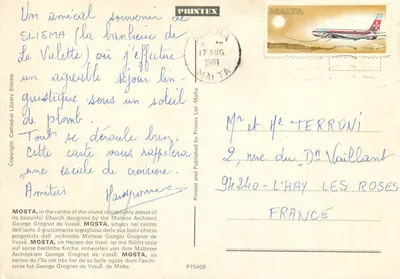 PRINTEX
Un amical souvenir de
SLIEMA (la banlieue de
La Valette) où j'effectue
un agréable séjour lin-
guistique sous un soleil
de plomb.
Tout se déroule bien.
Cette carte vous rappellera
une escale de croisière.
Amitiés
MOSTA, in the centre of the island is justifiably proud of
its beautiful Church designed by the Maltese Architect
George Grognet de Vassé. MOSTA, situata nel centro
dell'isola, è giustamente orgogliosa della sua bella chiesa
progettata dall'architetto Maltese Giorgio Grognet de
Vassé. MOSTA, im Herzen der Insel, ist mit Recht stolz
auf seine herrliche Kirche, entworfen von dem Maltese
Architekten George Grognet de Vassé. MOSTA,
au centre de l'île est très fier de sa belle église dont l'archi-
tecte fut George Grognet de Vassé, de Malte.
Copyright: Cathedral Library Sliema
Printed and Published by Printex Ltd - Malta
P75408
17 AUG
1981
MALTA
MALTA
Mr et Me TERRONI
2, rue du Dr Vaillant
94240 - L'HAY LES ROSES
FRANCE